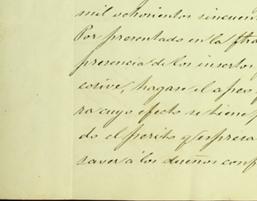 mil ochocientos cincuen
Por presentado en la
presencia de los
hagan el
ra cuyo efecto se tiene
do el perito
saver á los dueños conf